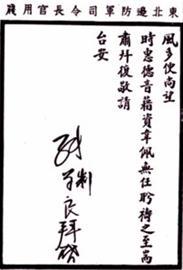 東北邊防軍司令長官用牋
風多便尚望
時惠德音藉資韋佩無任盼待之至耑
肅復敬請
台安
張學良拜啓